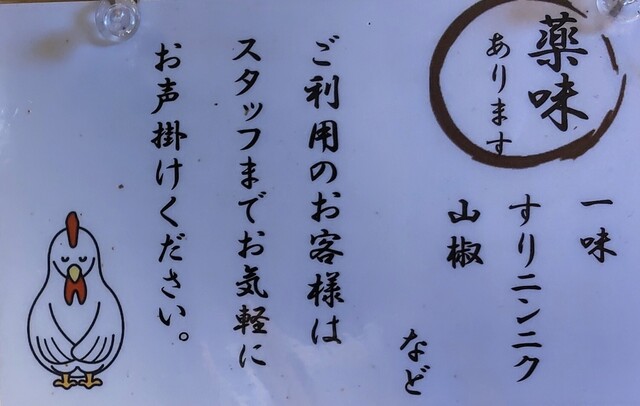 薬味
あります
一味
すりニンニク
山椒
など
ご利用のお客様は
スタッフまでお気軽に
お声掛けください。